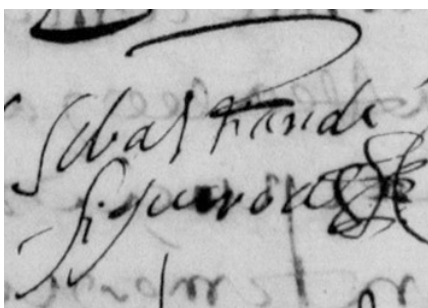 Sebastian de
figueroa